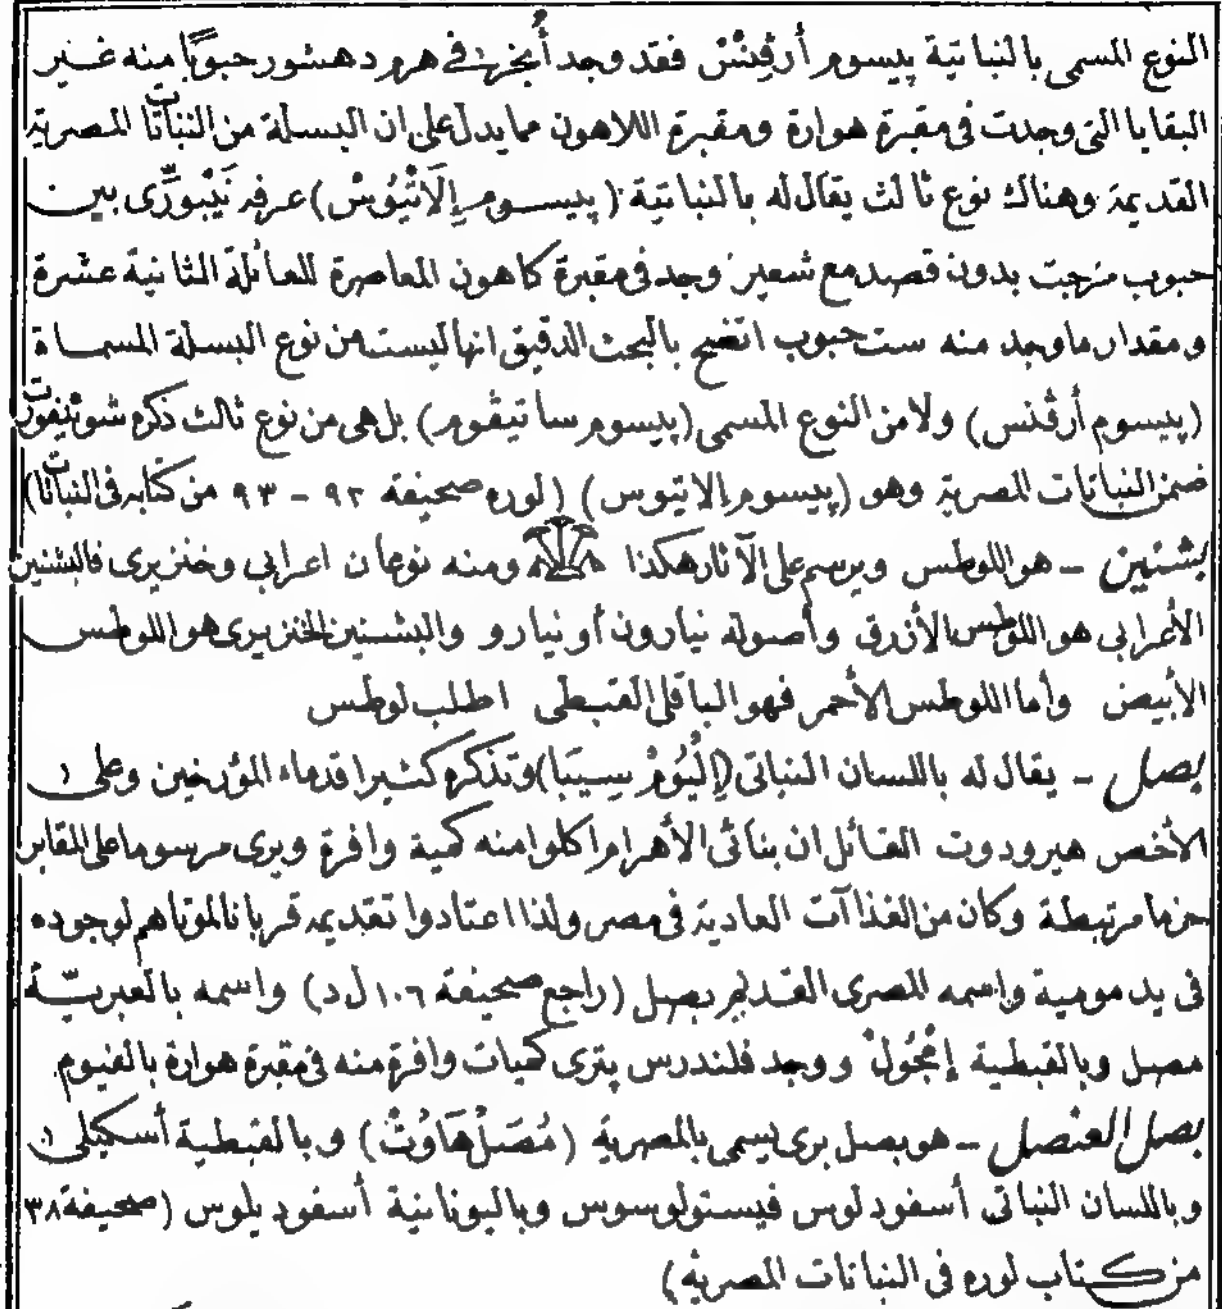 النوع المسمى بالنباتية پيسوم أرڤنس فقد وجد أُنجر في هرم دهشور حبوبًا منه غير
البقايا التى وجدت فى مقبرة هوارة ومقبرة اللاهون مما يدل على ان البسلة من النباتات المصرية
القديمة وهناك نوع ثالث يقال له بالنباتية (پيسوم إِلَاتْيُوسْ) عرفه نَيْبورّى بين
حبوب مزجت بدون قصد مع شعير وجد فى مقبرة كاهون المعاصرة للعائلة الثانية عشرة
ومقدار ما وجد منه ست حبوب اتضح بالبحث الدقيق انها ليست من نوع البسلة المسماة
(پيسوم أرڤنس) ولا من النوع المسمى (پيسوم ساتيڤوم) بل هى من نوع ثالث ذكره شوينفورت
ضمن النباتات المصرية وهو (پيسوم الاتيوس) (لوره صحيفة ٩٢ - ٩٣ من كتابه فى النباتات)
بشنين - هو اللوطس ويرسم على الآثار هكذا ومنه نوعان اعرابى وخنزيرى فالبشنين
الأعرابى هو اللوطس الأزرق وأصوله نيارون أو نيارو والبشنين الخنزيرى هو اللوطس
الأبيض وأما اللوطس الأحمر فهو الباقلى القبطى اطلب لوطس
بصل - يقال له باللسان النباتى (اِلْيُومْ سِيَبا) وتذكره كثيرا قدماء المؤرخين وعلى
الأخص هيرودوت القائل ان بنائى الأهرام اكلوا منه كمية وافرة ويرى مرسوما على المقابر
حزما مرتبطة وكان من الغذاآت العادية فى مصر ولذا اعتادوا تقديمه قربانا لموتاهم لوجوده
فى يد مومية واسمه المصرى القديم بصل (راجع صحيفة ١٠٦ ل د) واسمه بالعبريّة
مصل وبالقبطية إمْجُولْ ووجد فلندرس پترى كميات وافرة منه فى مقبرة هوارة بالفيوم
بصل العنصل - هو بصل برى يسمى بالمصرية (مُصَلْ هَاوُتْ) وبالقبطية أسكيلى
وباللسان النباتى أسفودلوس فيستولوسوس وباليونانية أسفوديلوس (صحيفة ٣٨
من كتاب لوره فى النباتات المصرية)